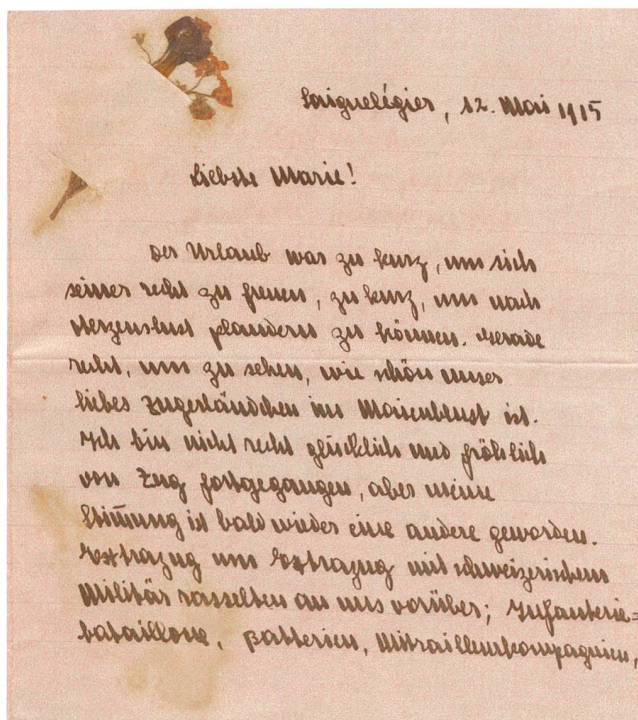 Saignelégier, 12. Mai 1915
Liebste Marie!
Der Urlaub war zu kurz, um sich
seiner recht zu freuen, zu kurz, um nach
Herzenslust plaudern zu können. Gerade
recht, um zu sehen, wie schön unser
liebes Zugerländchen im Maienblust ist.
Ich bin nicht recht glücklich und fröhlich
von Zug fortgegangen, aber meine
Stimmung ist bald wieder eine andere geworden.
Extrazug um Extrazug mit schweizerischem
Militär rasselten an uns vorüber; Infanterie=
bataillone, Batterien, Mitrailleurkompagnien,